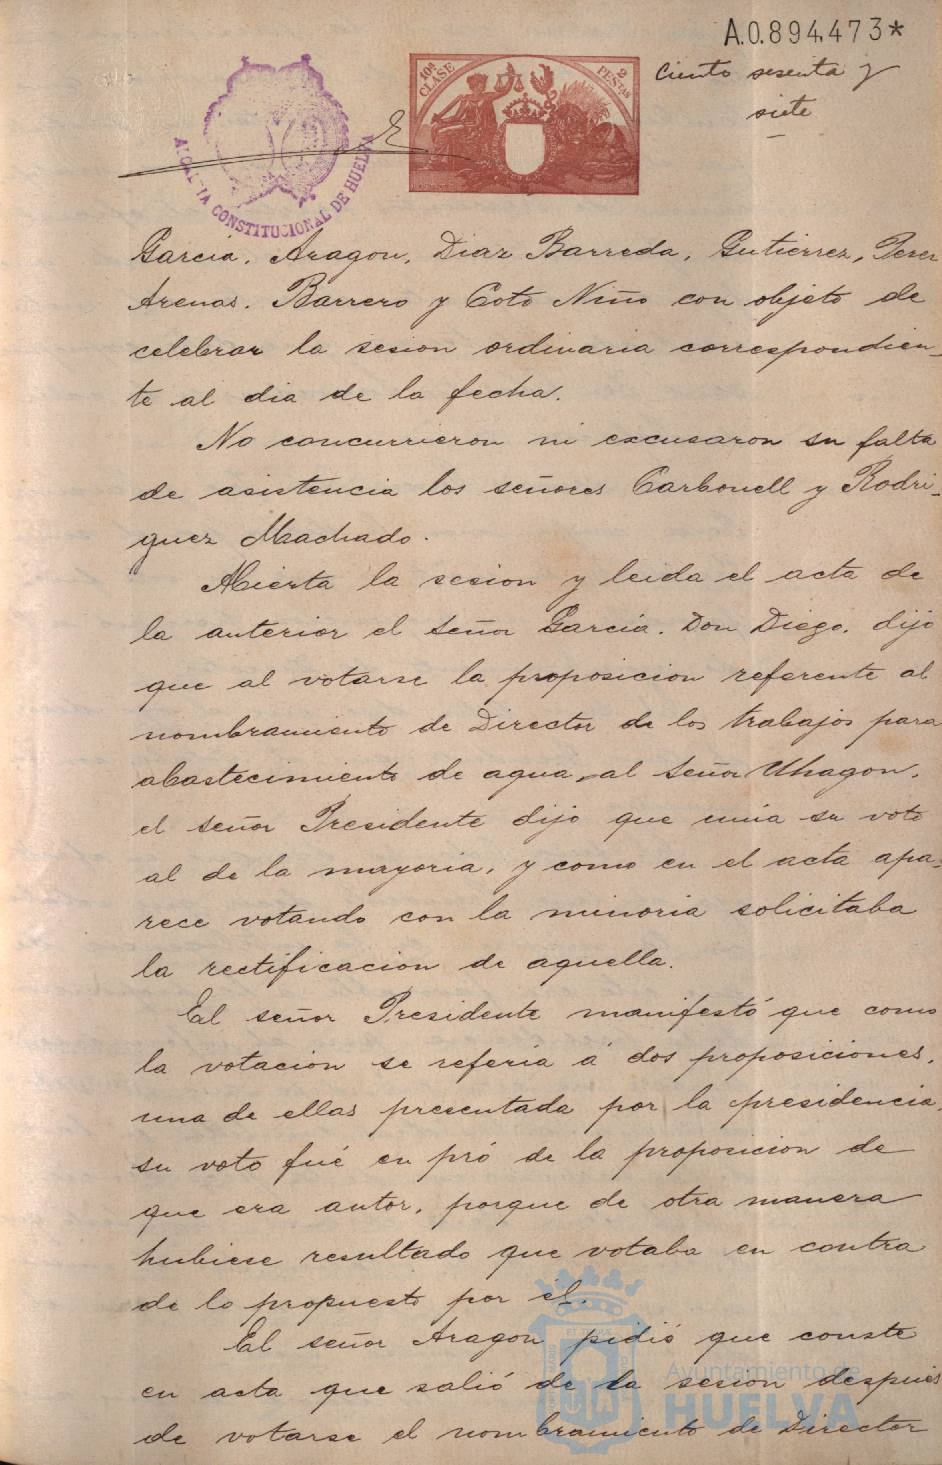 A.0.894.473*
10ª CLASE
2 PESTAS
Ciento sesenta y
siete
ALCALDIA CONSTITUCIONAL DE HUELVA
Garcia, Aragon, Diaz Barreda, Gutierrez, Perez
Arenas, Barrero y Coto Niño con objeto de
celebrar la sesion ordinaria correspondien-
te al dia de la fecha.
No concurrieron ni excusaron su falta
de asistencia los señores Carbonell y Rodri-
guez Machado.
Abierta la sesion y leida el acta de
la anterior el señor Garcia, Don Diego, dijo
que al votarse la proposicion referente al
nombramiento de Director de los trabajos para
abastecimiento de agua, al señor Uhagon,
el señor Presidente dijo que unia su voto
al de la mayoria, y como en el acta apa-
rece votando con la minoria solicitaba
la rectificacion de aquella.
El señor Presidente manifestó que como
la votacion se referia á dos proposiciones,
una de ellas presentada por la presidencia,
su voto fué en pró de la proposicion de
que era autor, porque de otra manera
hubiese resultado que votaba en contra
de lo propuesto por él.
El señor Aragon pidió que conste
en acta que salió de la sesion despues
de votarse el nombramiento de Director
Ayuntamiento de
HUELVA